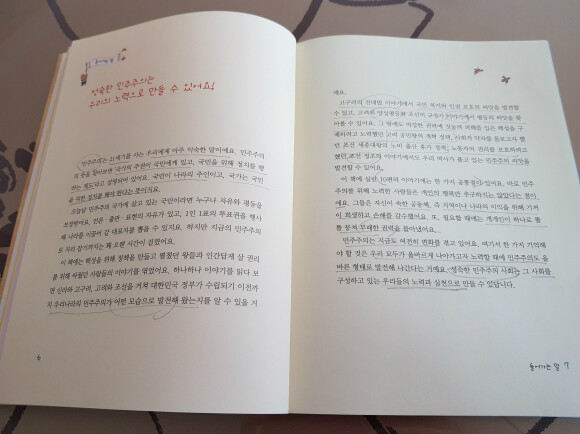 들어가는 말
성숙한 민주주의는
우리의 노력으로 만들 수 있어요!
민주주의는 21세기를 사는 우리에게 아주 익숙한 말이에요. 민주주의
의 뜻을 찾아보면 '국가의 주권이 국민에게 있고, 국민을 위해 정치를 행
하는 제도'라고 설명되어 있어요. 국민이 나라의 주인이고, 국가는 국민
을 위한 정치를 해야 한다는 뜻이지요.
오늘날 민주주의 국가에 살고 있는 국민이라면 누구나 자유와 평등을
보장받아요. 언론·출판·표현의 자유가 있고, 1인 1표의 투표권을 행사
해 나라를 이끌어 갈 대표자를 뽑을 수 있지요. 하지만 지금의 민주주의
로 자리 잡기까지는 꽤 오랜 시간이 걸렸어요.
이 책에는 백성을 위해 정책을 만들고 펼쳤던 왕들과 인간답게 살 권리
를 위해 저항한 사람들의 이야기를 엮었어요. 하나하나 이야기를 읽다 보
면 신라와 고구려, 고려와 조선을 거쳐 대한민국 정부가 수립되기 이전까
지 우리나라의 민주주의가 어떤 모습으로 발전해 왔는지를 알 수 있을 거
6
예요.
고구려의 진대법 이야기에서 국민 복지와 인권 보호의 씨앗을 발견할
수 있고, 고려의 만적
이야기에서 평등의 씨앗을 찾
아볼 수 있어요. 그 밖에도
권력에 짓눌려 피해를 입은 백성을 구
제하려고 노력했던 고려 공민왕의 개혁 정책, 사회적 약자를 돌보고자 했
던 조선 세종대왕의 노비 출산 휴가 정책, 노동자의 권리를 보호하려고
했던 조선 정조의 이야기에서도 우리 역사가 품고 있는 민주주의 씨앗을
발견할 수 있어요.
이 책에 실린 10편의 이야기에는 한 가지 공통점이 있어요. 바로 민주
주의를 위해 노력한 사람들은 개인의 행복만 추구하지는 않았다는 점이
에요. 그들은 자신이 속한 공동체, 즉 지역이나 나라의 이익을 위해 기꺼
이 희생하고 손해를 감수했지요. 또, 필요할 때에는 개개인이 하나로 똘
똘 뭉쳐 부패한 권력을 몰아냈어요.
민주주의는 지금도 여전히 변화를 겪고 있어요. 여기서 한 가지 기억해
야 할 것은 우리 모두가 올바르게 나아가고자 노력할 때에 민주주의도 올
바른 형태로 발전해 나간다는 거예요. 성숙한 민주주의 사회는 그 사회를
구성하고 있는 우리들의 노력과 실천으로 만들 수 있답니다.
들어가는 말 7